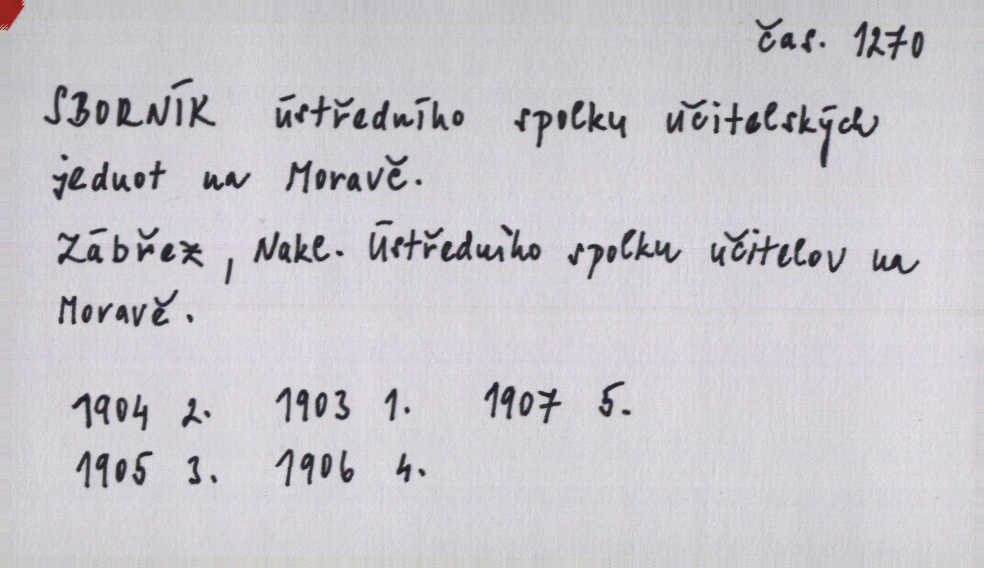 čas. 1270
SBORNÍK ústředního spolku učitelských
jednot na Moravě.
Zábřez, Nakl. Ústředního spolku učitelov na
Moravě.
1904 2. 1903 1. 1907 5.
1905 3. 1906 4.